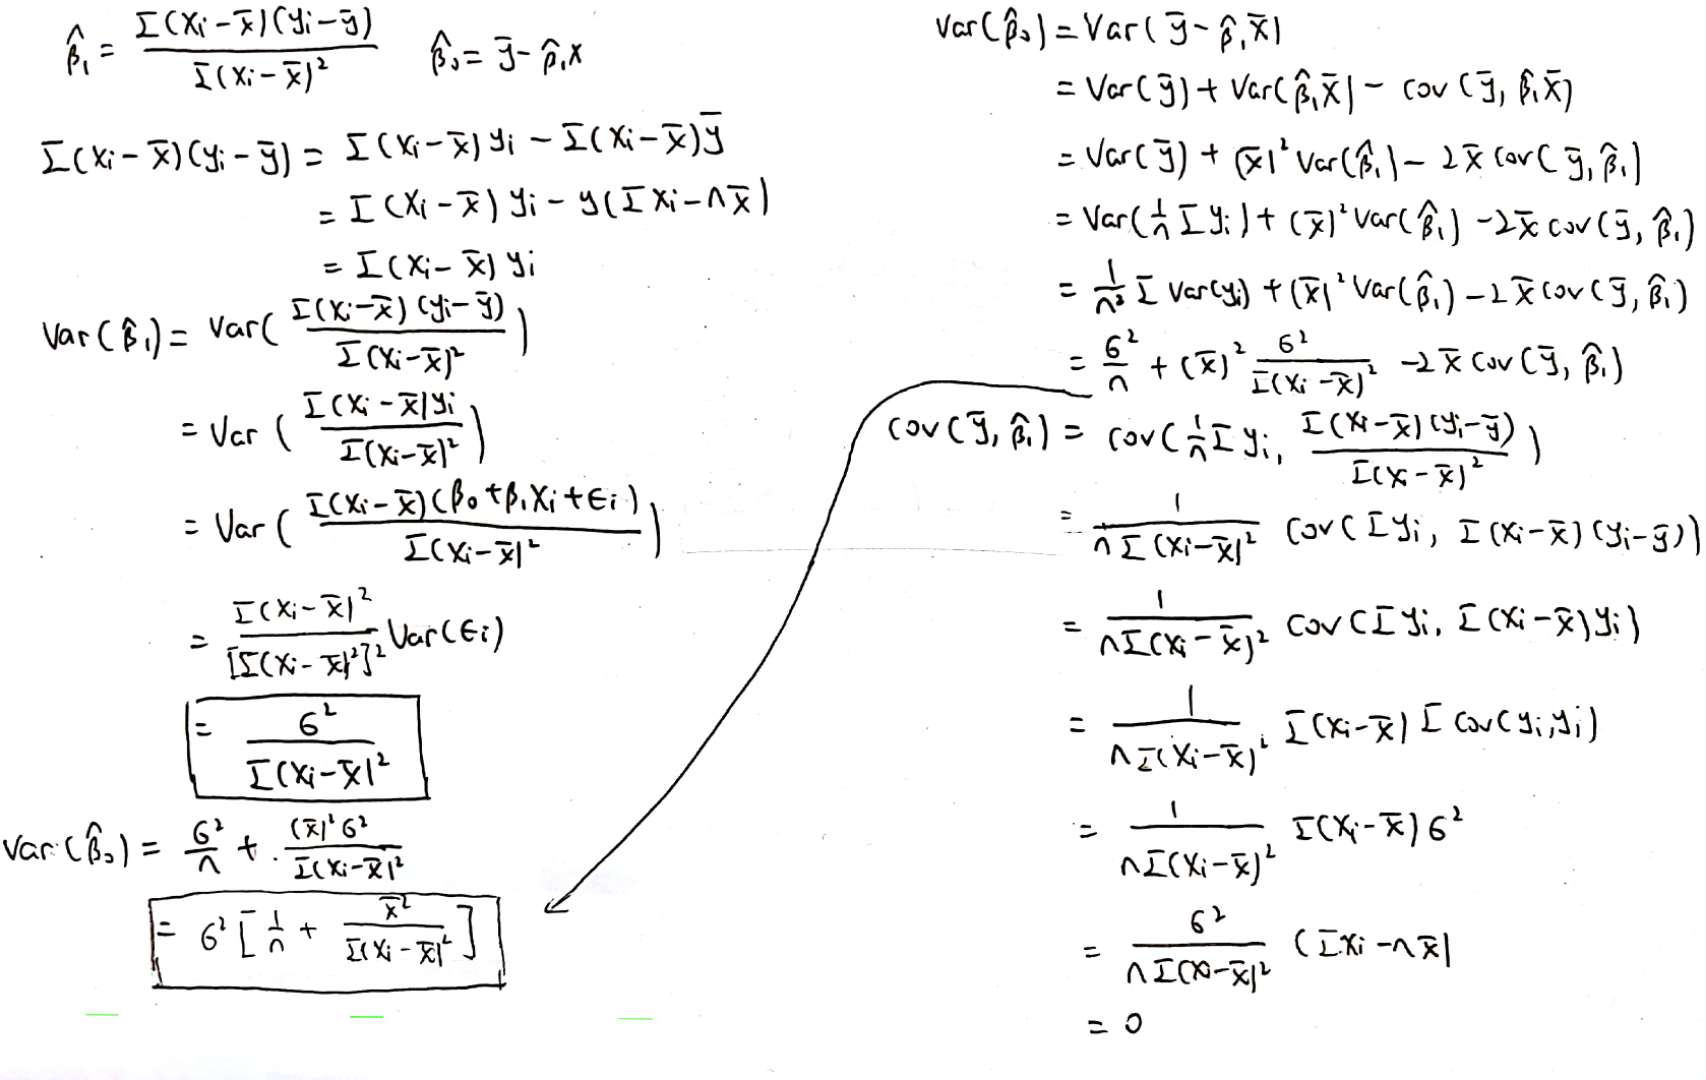 β̂₁ = Σ(xᵢ-x̄)(yᵢ-ȳ) / Σ(xᵢ-x̄)²   β̂₀ = ȳ-β̂₁x
Σ(xᵢ-x̄)(yᵢ-ȳ) = Σ(xᵢ-x̄)yᵢ - Σ(xᵢ-x̄)ȳ
= Σ(xᵢ-x̄)yᵢ - y(Σxᵢ-nx̄)
= Σ(xᵢ-x̄)yᵢ
Var(β̂₁) = Var( Σ(xᵢ-x̄)(yᵢ-ȳ) / Σ(xᵢ-x̄)² )
= Var( Σ(xᵢ-x̄)yᵢ / Σ(xᵢ-x̄)² )
= Var( Σ(xᵢ-x̄)(β₀+β₁xᵢ+εᵢ) / Σ(xᵢ-x̄)² )
= Σ(xᵢ-x̄)² / [Σ(xᵢ-x̄)²]² Var(εᵢ)
= σ² / Σ(xᵢ-x̄)²
Var(β̂₀) = σ²/n + (x̄)²σ² / Σ(xᵢ-x̄)²
= σ²[ 1/n + x̄² / Σ(xᵢ-x̄)² ]
Var(β̂₀) = Var(ȳ-β̂₁x̄)
= Var(ȳ) + Var(β̂₁x̄) - cov(ȳ, β̂₁x̄)
= Var(ȳ) + (x̄)² Var(β̂₁) - 2x̄ cov(ȳ, β̂₁)
= Var(1/n Σyᵢ) + (x̄)² Var(β̂₁) - 2x̄ cov(ȳ, β̂₁)
= 1/n² Σ Var(yᵢ) + (x̄)² Var(β̂₁) - 2x̄ cov(ȳ, β̂₁)
= σ²/n + (x̄)² σ² / Σ(xᵢ-x̄)² - 2x̄ cov(ȳ, β̂₁)
cov(ȳ, β̂₁) = cov( 1/n Σyᵢ, Σ(xᵢ-x̄)(yᵢ-ȳ) / Σ(xᵢ-x̄)² )
= 1 / nΣ(xᵢ-x̄)² cov(Σyᵢ, Σ(xᵢ-x̄)(yᵢ-ȳ))
= 1 / nΣ(xᵢ-x̄)² cov(Σyᵢ, Σ(xᵢ-x̄)yᵢ)
= 1 / nΣ(xᵢ-x̄)² Σ(xᵢ-x̄) Σ cov(yᵢ, yᵢ)
= 1 / nΣ(xᵢ-x̄)² Σ(xᵢ-x̄)σ²
= σ² / nΣ(xᵢ-x̄)² (Σxᵢ-nx̄)
= 0